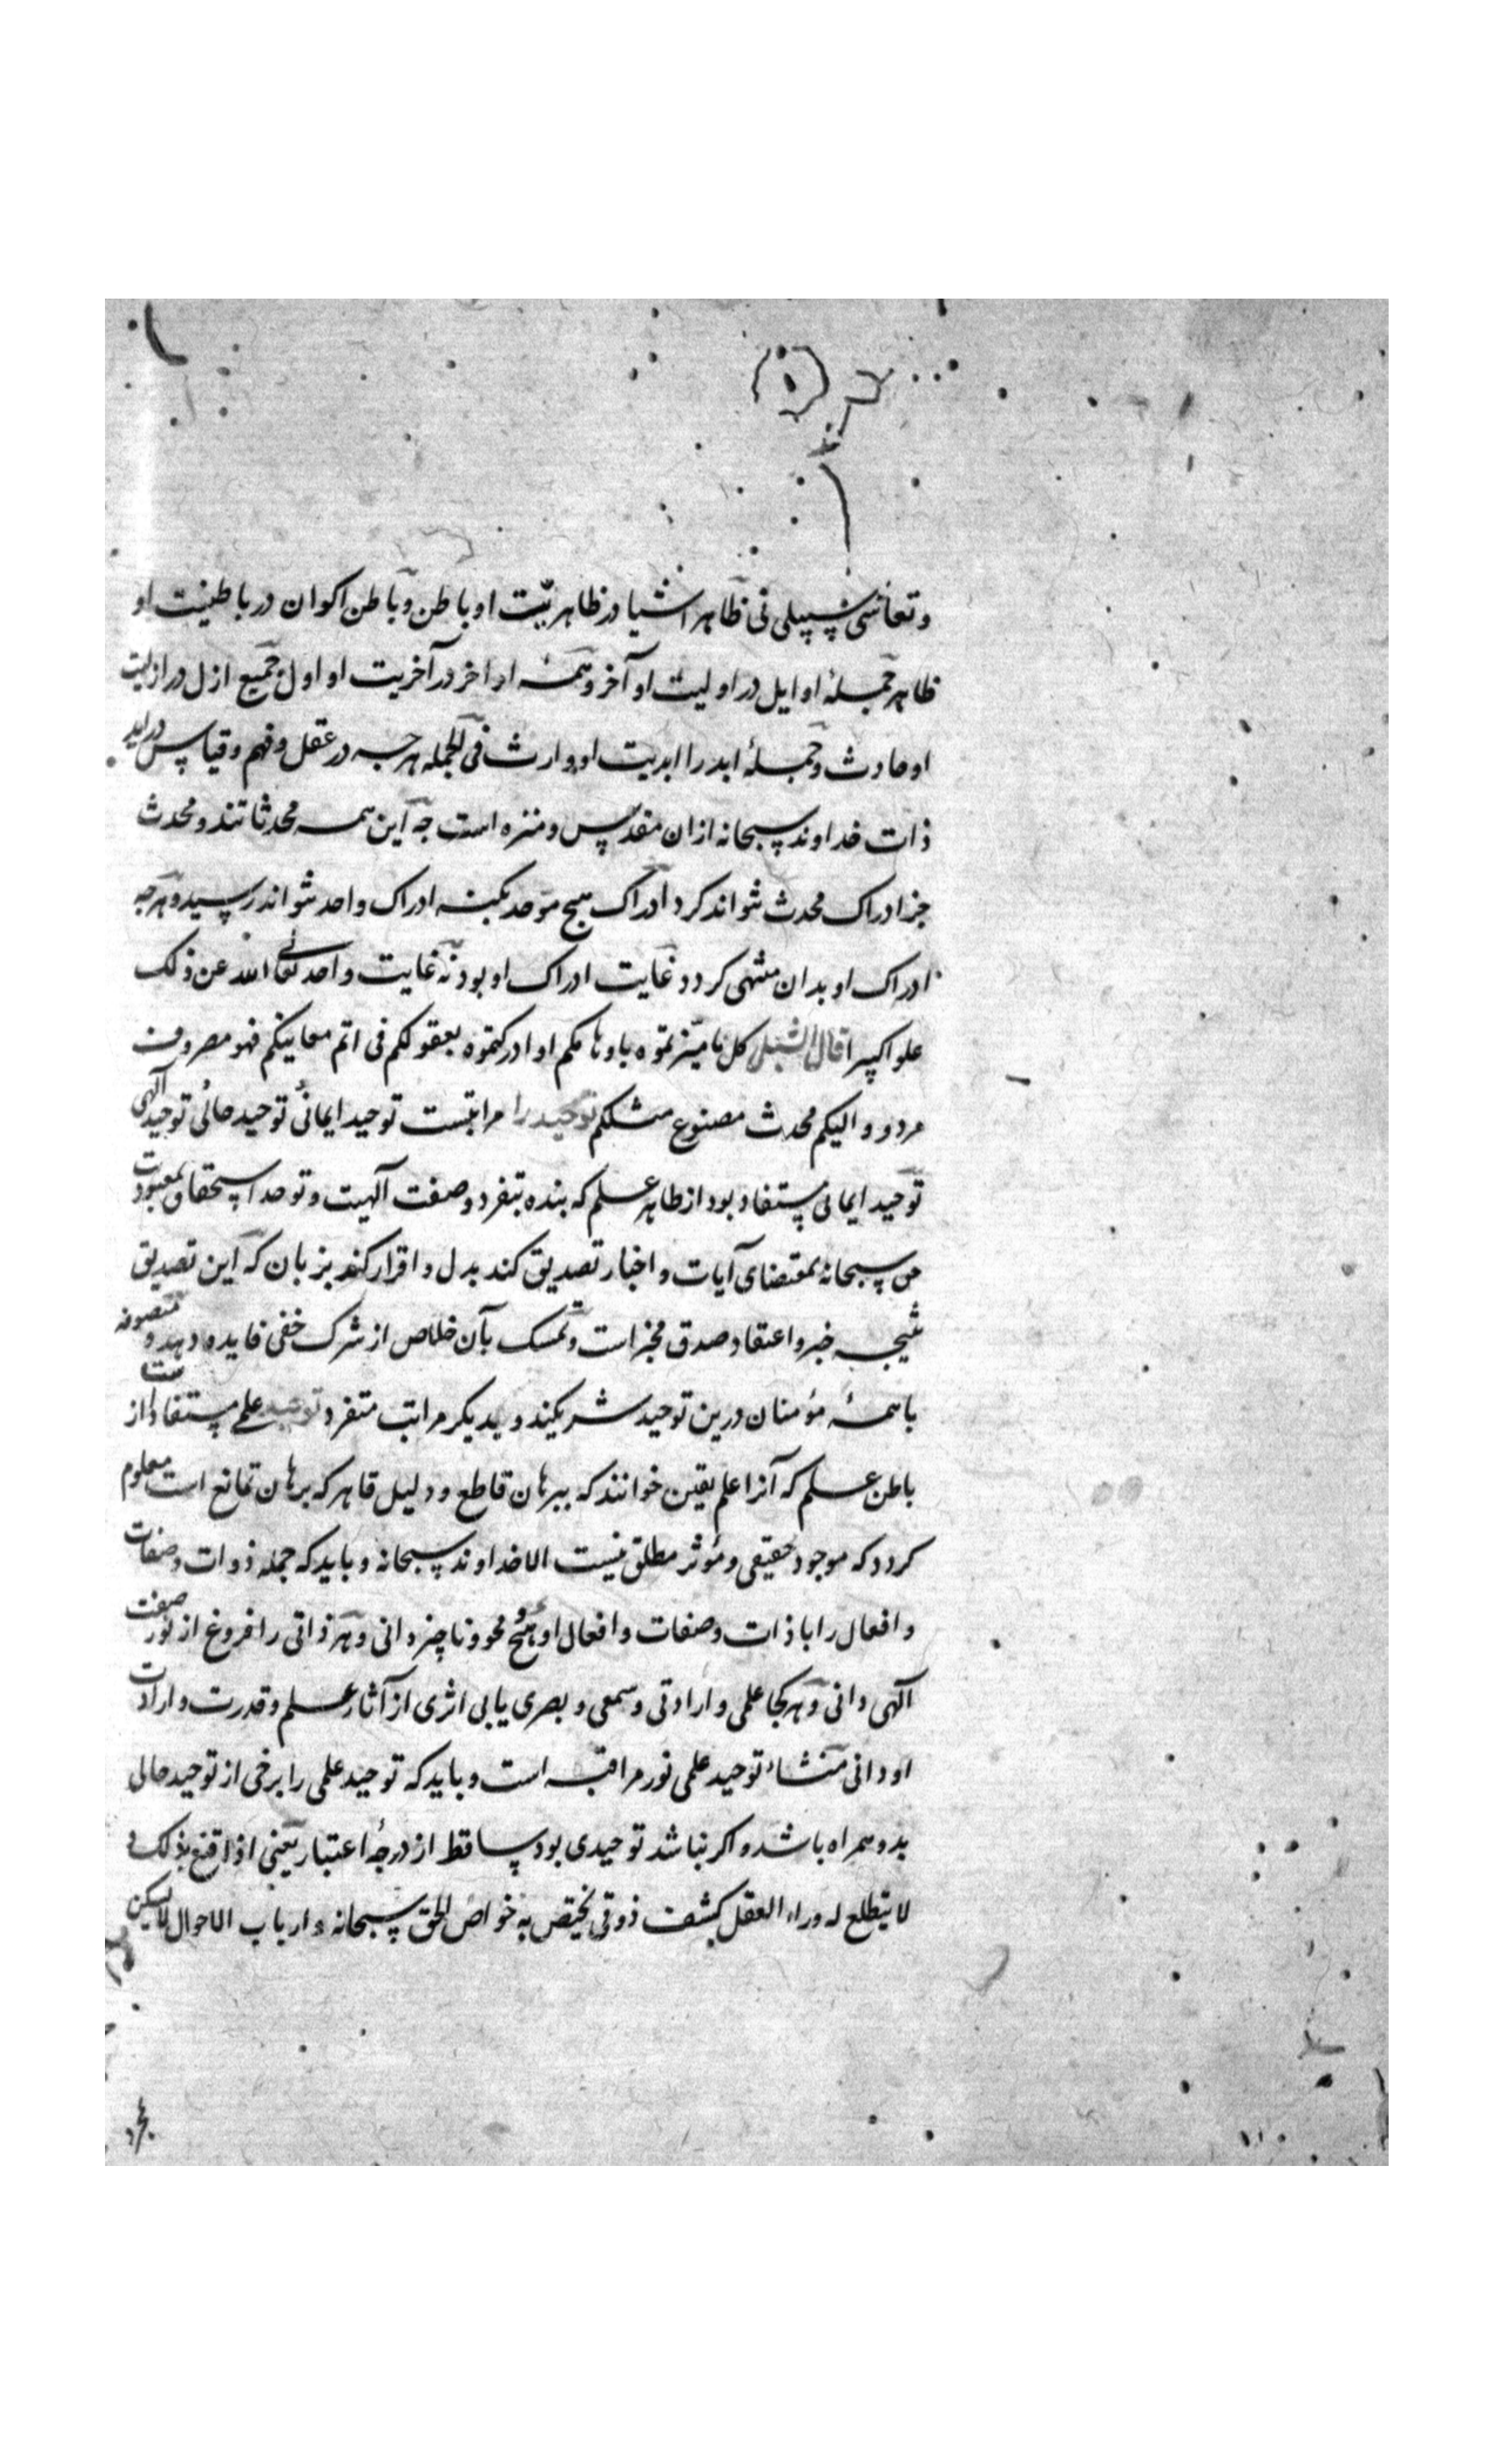 (۱)
و تعاشی سپیلی نی ظاهر اشیا در ظاهریت او باطن و باطن اکوان در باطنیت او
ظاهر جملهٔ اوایل در اولیت او آخر و همهٔ اواخر در آخریت او اول جمیع ازل در ازلیت
او حادث و جملهٔ ابد را ابدیت او وارث فی الجمله هرچه در عقل و فهم و قیاس دراید
ذات خداوند سبحانه ازان مقدس و منزه است چه این همه محدثاتند و محدث
جز ادراک محدث نتواند کرد ادراک هیچ موحد بکنه ادراک واحد نتواند رسید و هرچه
ادراک او بدان منتهی کردد غایت ادراک او بود نه غایت واحد تعالی الله عن ذلک
علوا کبیرا قال الشبلی کل ما میزتموه باوهامکم او ادرکتموه بعقولکم فی اتم معانیکم فهو مصروف
مردود الیکم محدث مصنوع مثلکم توحید را مراتبست توحید ایمانی توحید حالی توحید آلهی
توحید ایمانی مستفاد بود از ظاهر علم که بنده بتفرد وصفت آلهیت و توحد استحقاق معبودیت
حق سبحانه بمقتضای آیات و اخبار تصدیق کند بدل و اقرار کند بزبان که این تصدیق
نتیجه خبر و اعتقاد صدق مخبر است و تمسک بآن خلاص از شرک خفی فایده دهد و متصوفه
با همهٔ مؤمنان درین توحید شریکند و بدیکر مراتب متفرد توحید علمی مستفاد است از
باطن علم که آنرا علم یقین خوانند که ببرهان قاطع و دلیل قاهر که برهان تمانع است معلوم
کردد که موجود حقیقی و مؤثر مطلق نیست الا خداوند سبحانه و باید که جمله ذوات و صفات
و افعال را با ذات و صفات و افعال او هیچ محو و ناچیز دانی و هر ذاتی را فروغ از نور صفت
آلهی دانی و هرکجا علمی و ارادتی و سمعی و بصری یابی اثری از آثار علم و قدرت و ارادت
او دانی منشاء توحید علمی نور مراقبه است و باید که توحید علمی را برخی از توحید حالی
بدو همراه باشد و اکر نباشد توحیدی بود ساقط از درجهٔ اعتبار یعنی اذا قنع بذلک و
لا یتطلع له وراء العقل بکشف ذوقی یختص به خواص الحق سبحانه و ارباب الاحوال لا یمکن